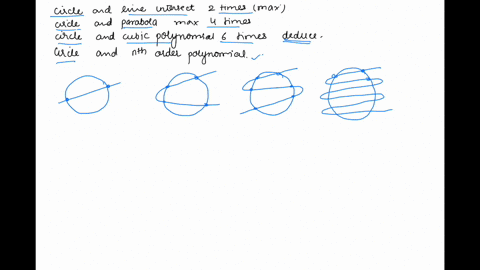 circle and line intersect 2 times (max)
circle and parabola max 4 times
circle and cubic polynomial 6 times deduce.
Circle and nth order polynomial.